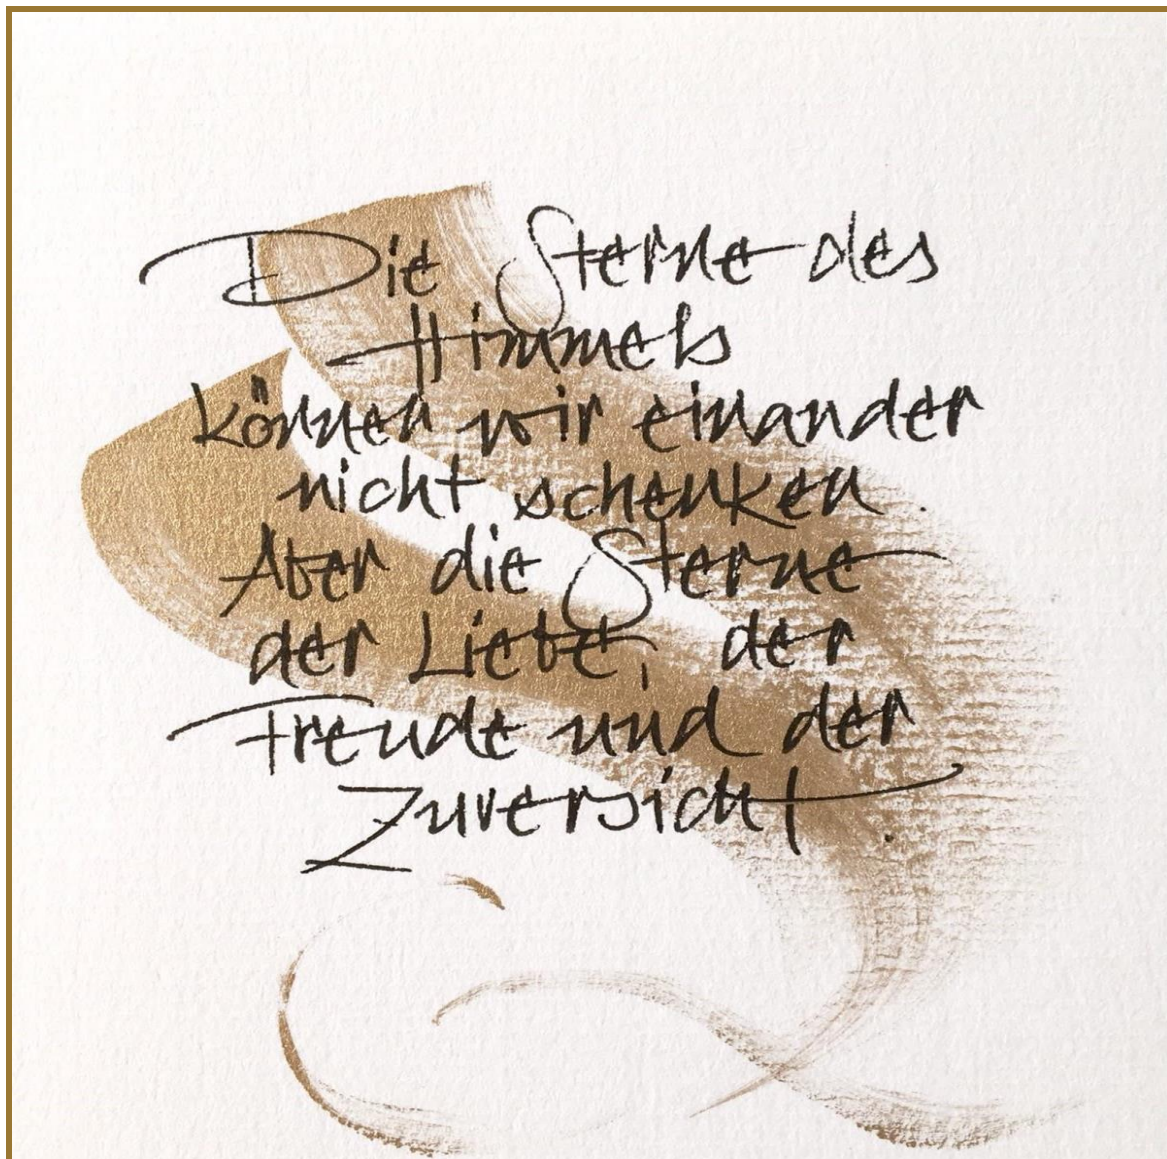 Die Sterne des
Himmels
können wir einander
nicht schenken.
Aber die Sterne
der Liebe, der
Freude und der
Zuversicht.